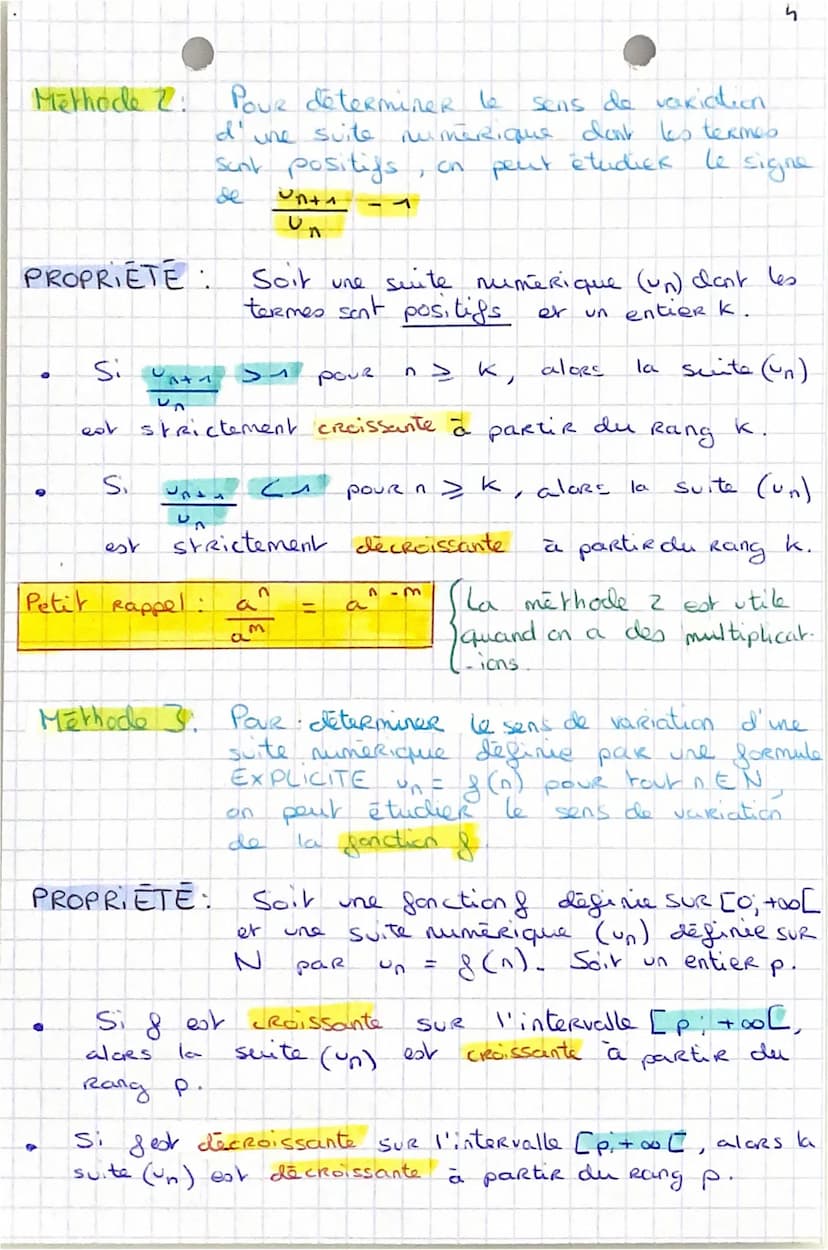 4
Méthode 2 : Pour déterminer le sens de variation
d'une suite numérique dont les termes
sont positifs, on peut étudier le signe
de u_{n+1}/u_n - 1
PROPRIÉTÉ : Soit une suite numérique (u_n) dont les
termes sont positifs et un entier k.
• Si u_{n+1}/u_n > 1 pour n ≥ k, alors la suite (u_n)
est strictement croissante à partir du rang k.
• Si u_{n+1}/u_n < 1 pour n ≥ k, alors la suite (u_n)
est strictement décroissante à partir du rang k.
Petit rappel : a^n/a^m = a^{n-m}
{La méthode 2 est utile
quand on a des multiplicat-
-ions.
Méthode 3. Pour déterminer le sens de variation d'une
suite numérique définie par une formule
EXPLICITE u_n = f(n) pour tout n ∈ N,
on peut étudier le sens de variation
de la fonction f.
PROPRIÉTÉ : Soit une fonction f définie sur [0; +∞[
et une suite numérique (u_n) définie sur
N par u_n = f(n). Soit un entier p.
• Si f est croissante sur l'intervalle [p; +∞[,
alors la suite (u_n) est croissante à partir du
rang p.
• Si f est décroissante sur l'intervalle [p; +∞[, alors la
suite (u_n) est décroissante à partir du rang p.